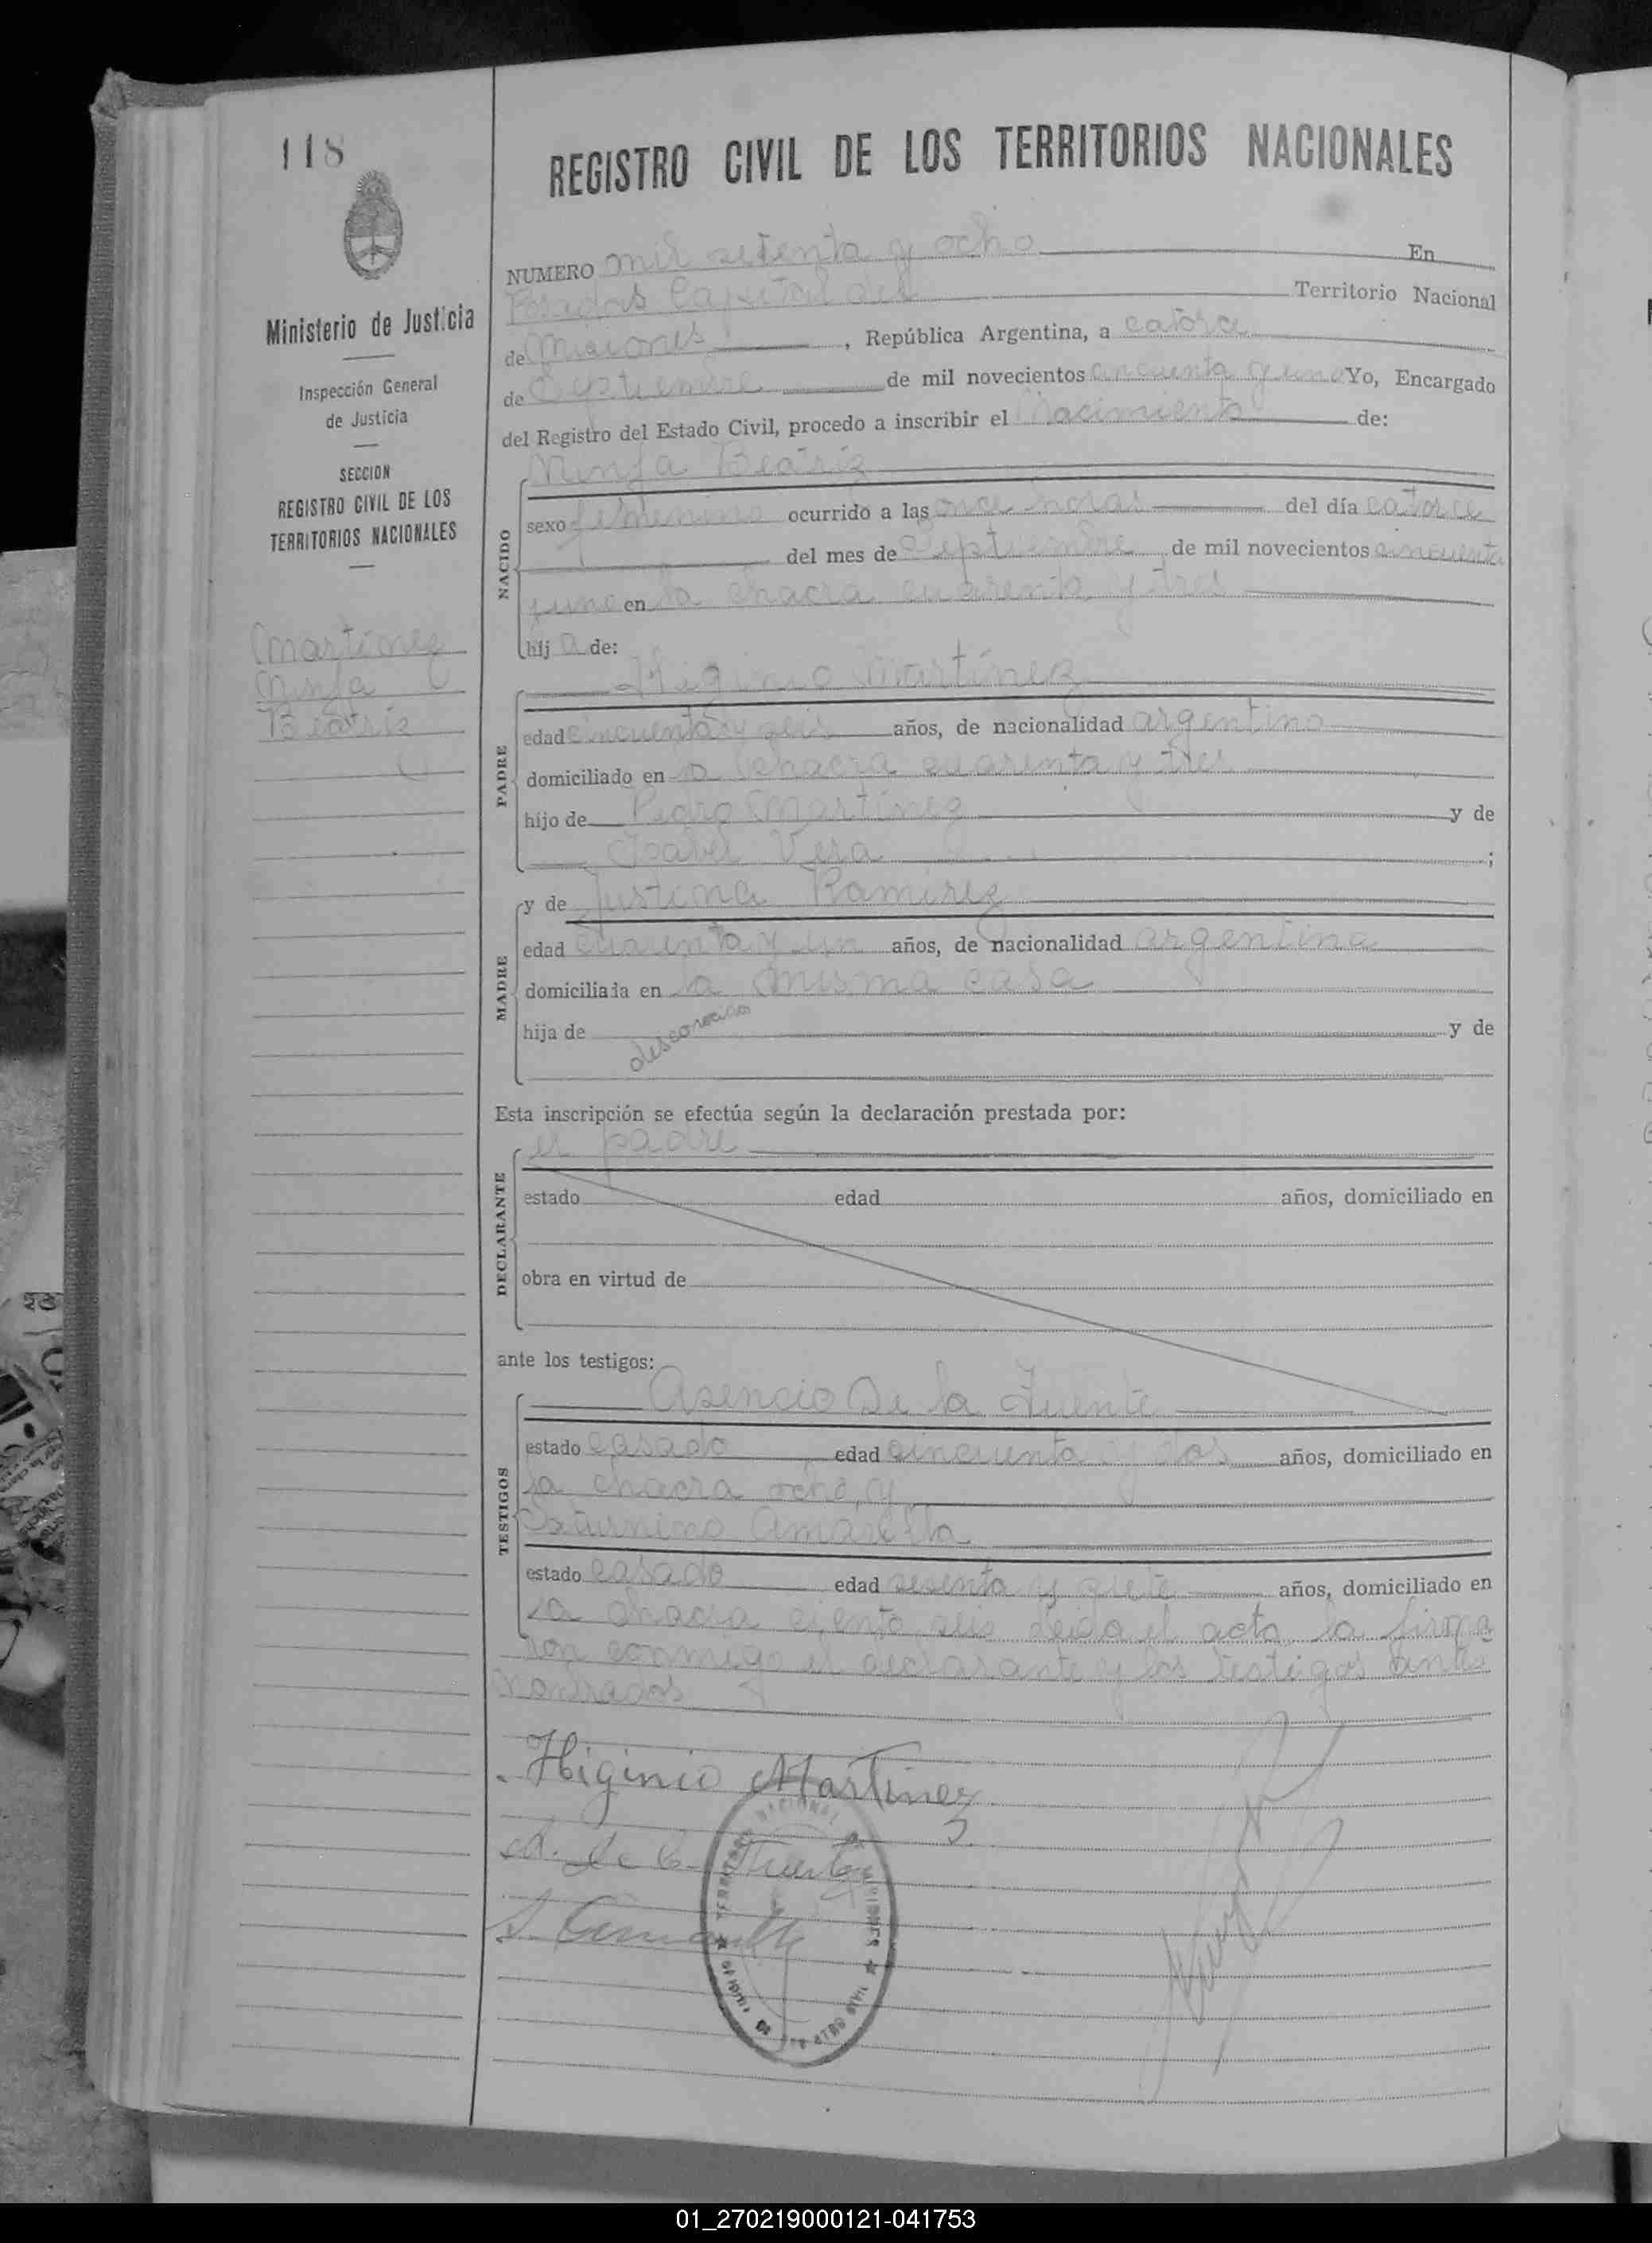 118
REGISTRO CIVIL DE LOS TERRITORIOS NACIONALES
Ministerio de Justicia
Inspección General
de Justicia
SECCION
REGISTRO CIVIL DE LOS
TERRITORIOS NACIONALES
Martínez
Ninfa
Beatriz
NUMERO mil setenta y ocho En
Posadas Capital del Territorio Nacional
de Misiones, República Argentina, a catorce
de Septiembre de mil novecientos cincuenta y uno Yo, Encargado
del Registro del Estado Civil, procedo a inscribir el Nacimiento de:
NACIDO
Ninfa Beatriz
sexo femenino ocurrido a las once horas del día catorce
del mes de Septiembre de mil novecientos cincuenta
y uno en la chacra cuarenta y tres
hij a de:
PADRE
Higinio Martínez
edad cincuenta y seis años, de nacionalidad argentino
domiciliado en la chacra cuarenta y tres
hijo de Pedro Martínez y de
Isabel Vera ;
MADRE
y de Justina Ramírez
edad cuarenta y un años, de nacionalidad argentina
domiciliada en la misma casa
hija de desconocidos y de
Esta inscripción se efectúa según la declaración prestada por:
DECLARANTE
el padre
estado edad años, domiciliado en
obra en virtud de
ante los testigos:
TESTIGOS
Asencio De la Fuente
estado casado edad cincuenta y dos años, domiciliado en
la chacra ocho, y
Saturnino Amarilla
estado casado edad sesenta y siete años, domiciliado en
la chacra ciento seis Leida el acta la firma
ron conmigo el declarante y los testigos ante
nombrados
Higinio Martinez
A. de la Fuente
S. Amarilla
TERRITORIO NACIONAL DE MISIONES
01_270219000121-041753